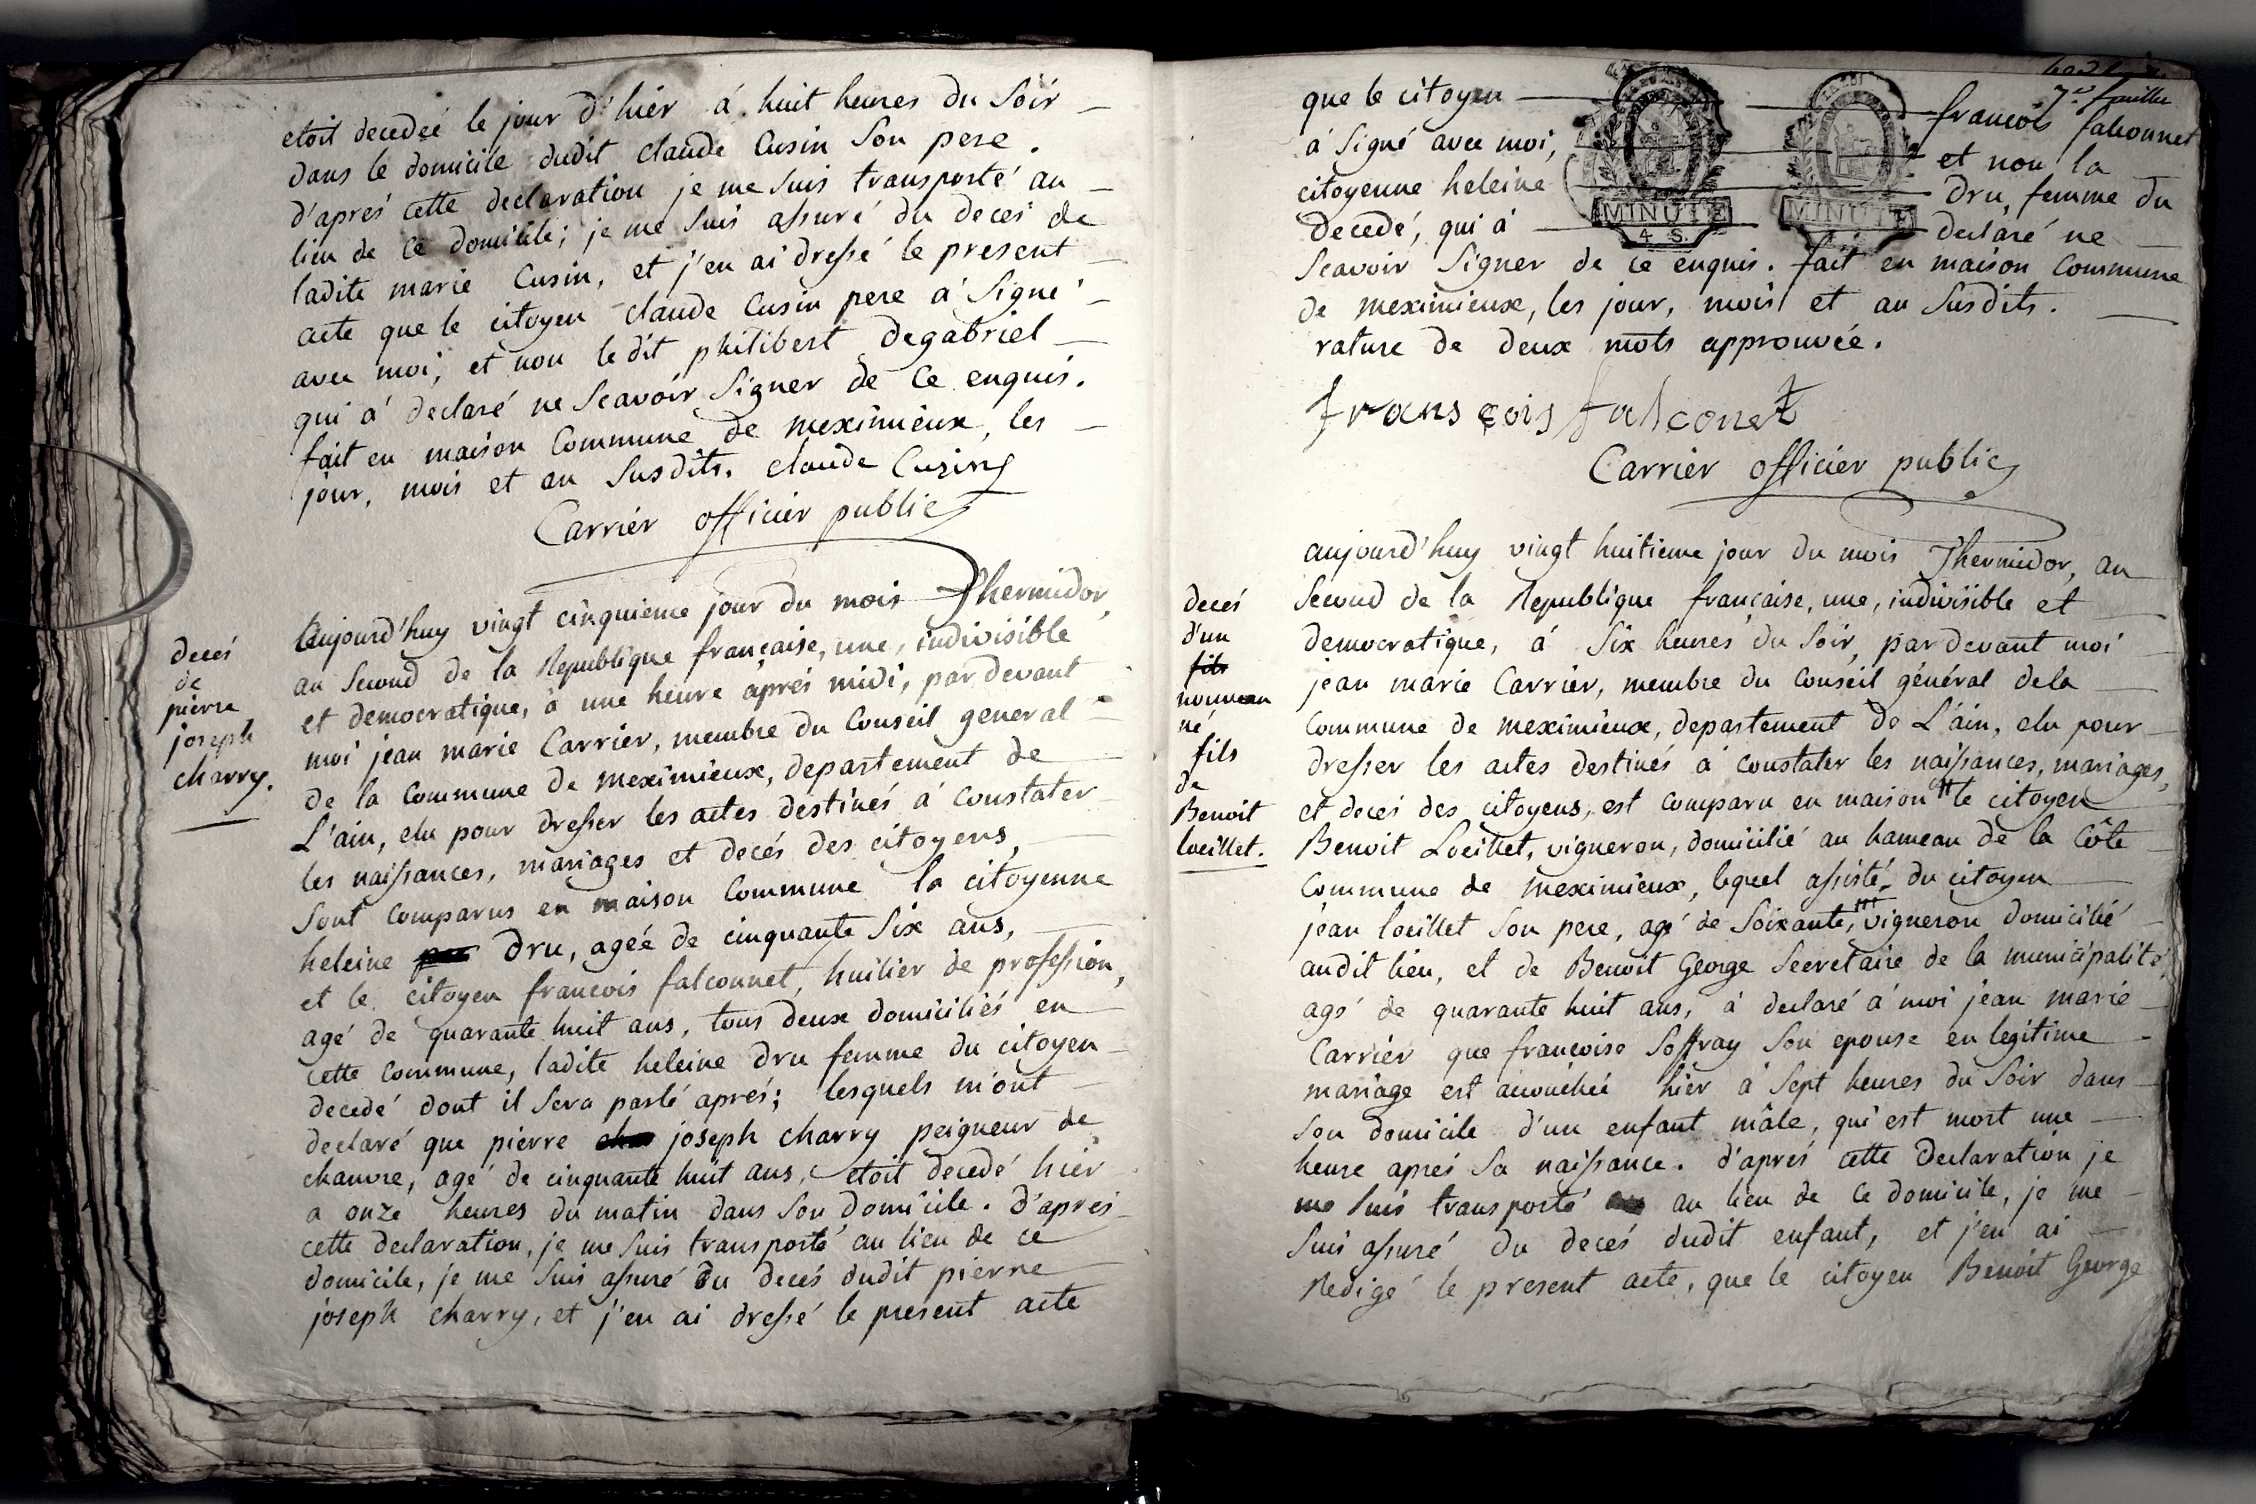 etoit decedeé le jour d'hier á huit heures du Soir
dans le domicile dudit claude Cusin Son pere.
d'aprés cette declaration je me Suis transporté au
lieu de ce domicile; je me Suis assuré du decés de
ladite marie Cusin, et j'en ai dressé le present
acte que le citoyen claude Cusin pere a Signé
avec moi, et non le dit philibert Degabriel
qui á declaré ne Scavoir Signer de ce enquis.
fait en maison Commune de meximieux, les
jour, mois et an Susdits. claude Cusin
Carrier officier public
decés
de
pierre
joseph
charry.
aujourd'huy vingt cinquieme jour du mois Thermidor,
an Second de la Republique française, une, indivisible
et democratique, á une heure aprés midi, par devant
moi jean marie Carrier, membre du Conseil general
de la Commune de meximieux, departement de
L'ain, elu pour dresser les actes destinés á constater
les naissances, mariages et decés des citoyens,
Sont comparus en maison Commune la citoyenne
heleine Dru, ageé de cinquante Six ans,
et le citoyen francois falconnet, huilier de profession,
agé de quarante huit ans, tous deux domiciliés en
cette Commune, ladite heleine Dru femme du citoyen
decedé dont il Sera parlé aprés; lesquels m'ont
declaré que pierre joseph charry peigneur de
chanvre, agé de cinquante huit ans, etoit decedé hier
a onze heures du matin dans Son Domicile. D'aprés
cette declaration, je me Suis transporté au lieu de ce
domicile, je me Suis assuré du decés dudit pierre
joseph charry, et j'en ai dressé le present acte
7e feuillet
que le citoyen francois falconnet
á Signé avec moi, et non la
citoyenne heleine Dru, femme du
Decedé, qui á declaré ne
MINUTE
4 S.
MINUTE
Scavoir Signer de ce enquis. fait en maison Commune
de meximieux, les jour, mois et an Susdits.
rature de deux mots approuvée.
fransçois falconet
Carrier officier public
decés
d'un
fils
nouveau
né
fils
de
Benoit
loeillet.
aujourd'huy vingt huitieme jour du mois Thermidor, an
Second de la Republique française, une, indivisible et
democratique, á Six heures du Soir, par devant moi
jean marie Carrier, membre du Conseil général dela
Commune de meximieux, departement de L'ain, elu pour
dresser les actes destinés á constater les naissances, mariages,
et decés des citoyens, est comparu en maison Cne le citoyen
Benoit Loeillet, vigneron, domicilié au hameau de la Côte
Commune de meximieux, lequel assisté du citoyen
jean loeillet Son pere, agé de Soixante, vigneron domicilié
audit lieu, et de Benoit George Secretaire de la municipalité,
agé de quarante huit ans, á declaré á moi jean marie
Carrier que francoise Soffray Son epouse en legitime
mariage est accouchée hier á Sept heures du Soir dans
Son domicile d'un enfant mâle, qui est mort une
heure aprés Sa naissance. d'aprés cette Declaration je
me Suis transporté au lieu de ce domicile, je me
Suis assuré du decés dudit enfant, et j'en ai
Redigé le present acte, que le citoyen Benoit George